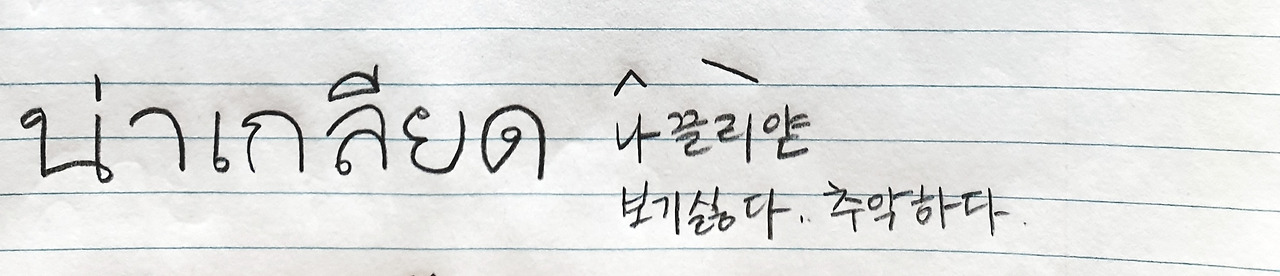 น่าเกลียด 나끌리얃
보기싫다.. 추악하다.